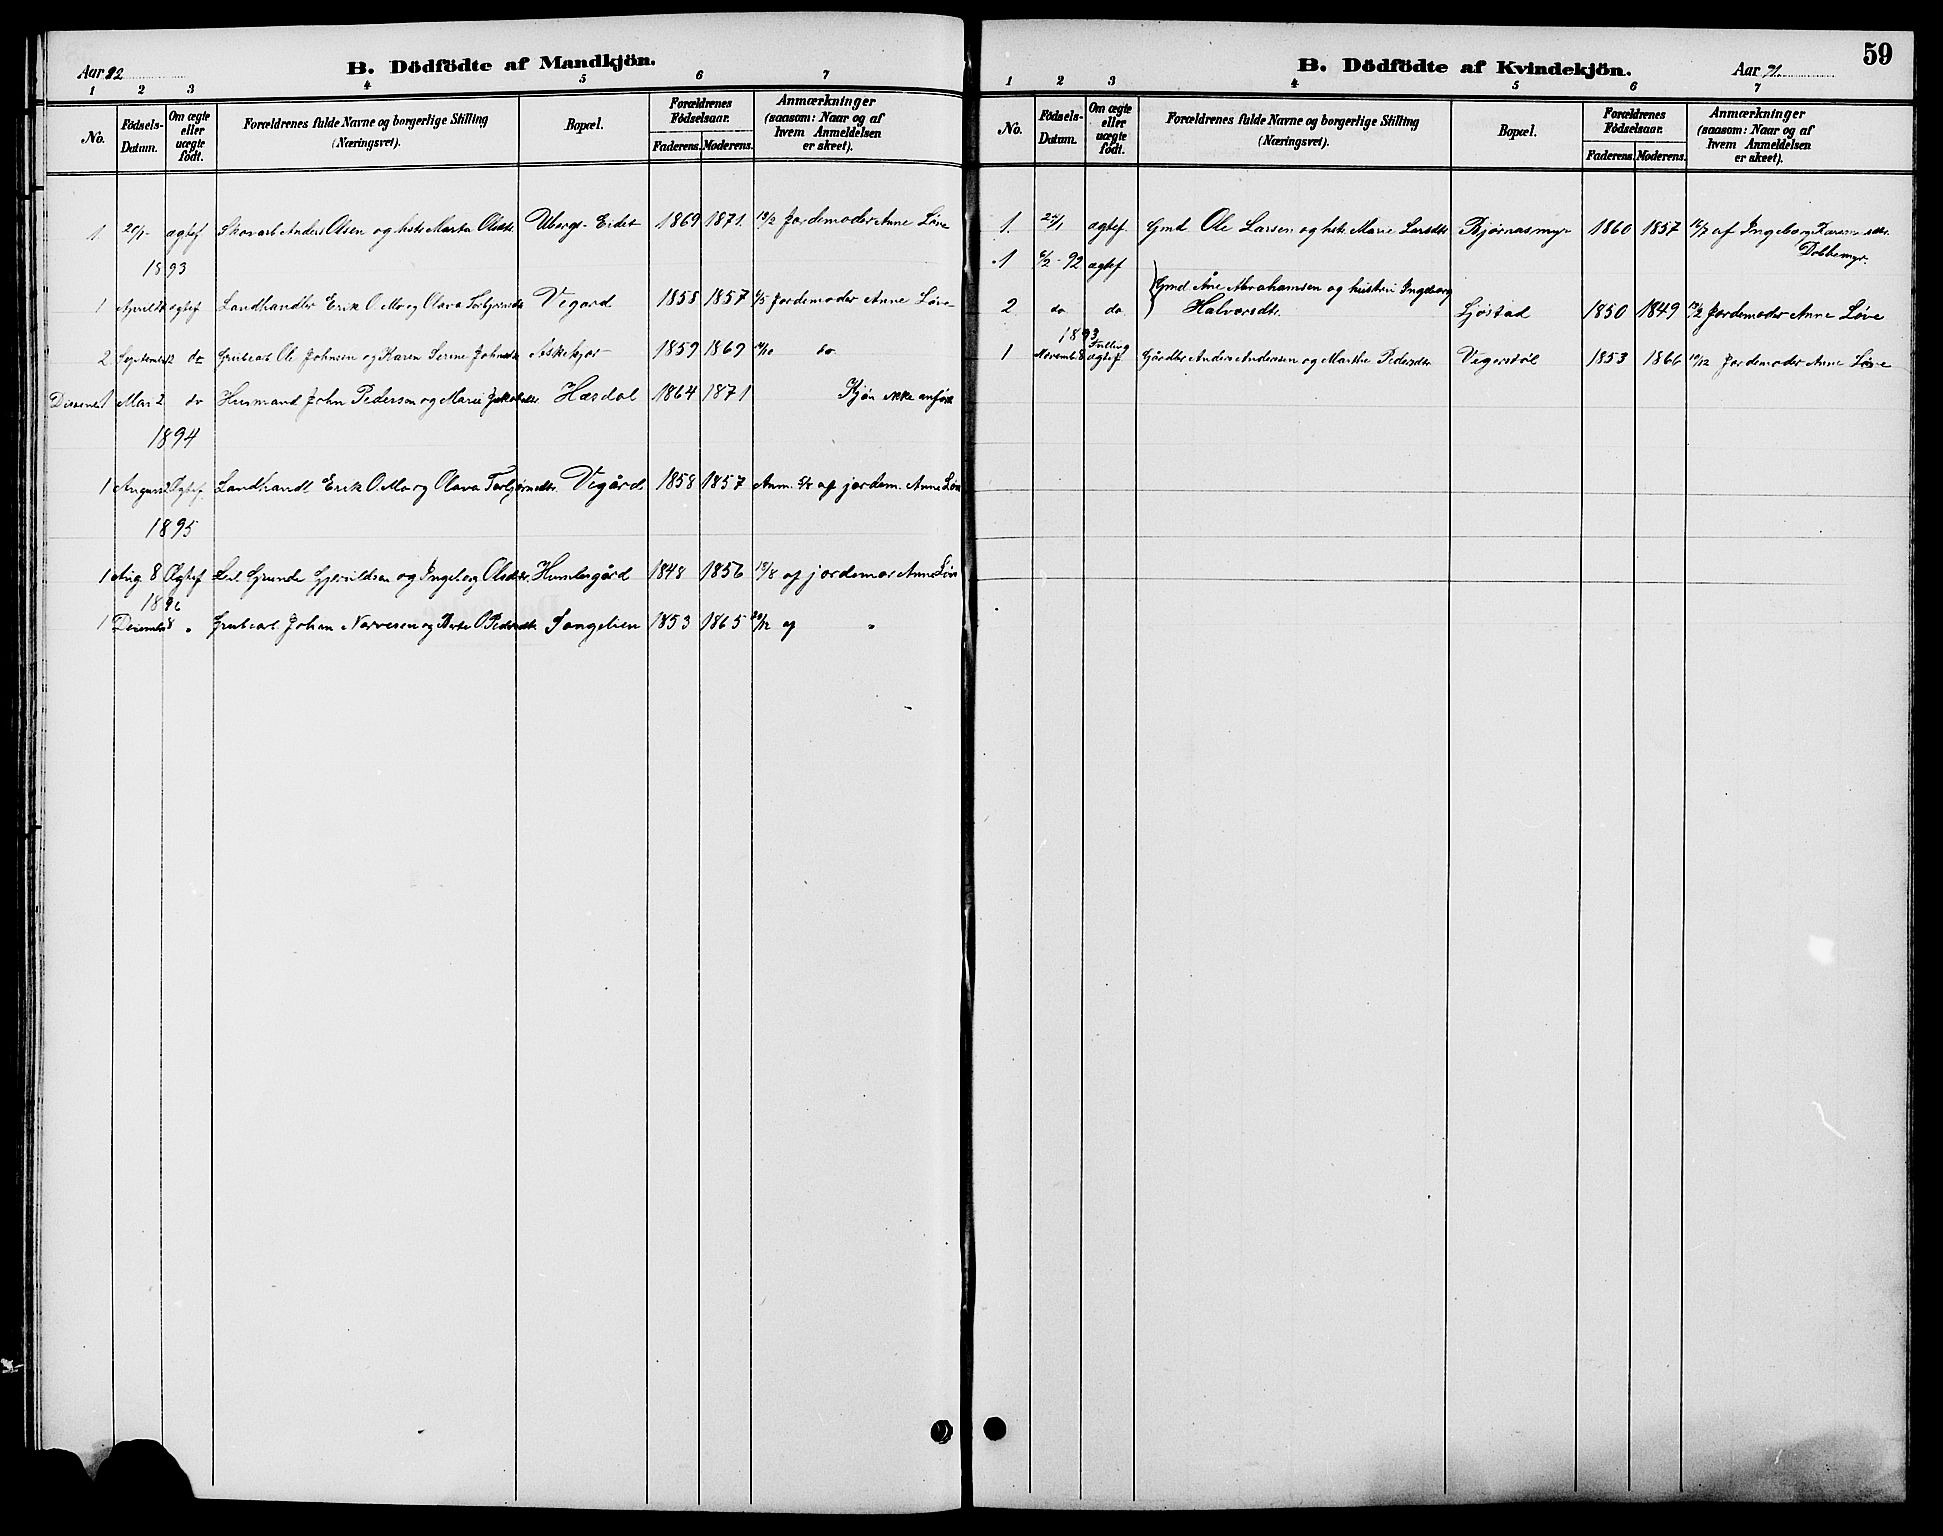 Aar 92
B. Dödfödte af Mandkjön.
1 2 3 4 5 6 7
No. Födsels-Datum. Om ægte eller uægte födt. Forældrenes fulde Navne og borgerlige Stilling (Næringsvei). Bopæl. Forældrenes Födselsaar. Faderens. Moderens. Anmærkninger (saasom: Naar og af hvem Anmeldelsen er skeet).
1 20/1- ægtef Skovarb Anders Olsen og hst Marta Olsdtr Ubergs-Eidet 1869 1871. 13/2 Jordemoder Anne Løve
1893
1 April ægtef Landhandler Erik O. Mo og Olava Torbjørnsdtr Vegard 1858 1857 1/5 Jordemoder Anne Løve
2 Septemb 12 do Grubearb Ole Johnsen og Karen Serine Johnsdtr Askekjær 1859 1869 do
1 Mai 2 do Husmand John Pedersen og Marie Jakobsdtr Hæsdal 1864 1871 Kjøn ikke anført
1894
1 August Ægtef. Landhandl. Erik O. Mo og Olava Torbjørnsdtr. Vegård 1858 1857 Anm. 5/8 af jordem. Anne Løve
1895
1 Aug 8 Ægtef Grunde Gjeruldsen og Ingeborg Olsdtr. Humlegård 1848 1856 13/8 af jordemor Anne Løve
1896
1 Decemb 8 " Grubearb Johan Narvesen og Berte O. Pedersdtr Songelien 1853 1865 30/12 af "
59
B. Dödfödte af Kvindekjön.
Aar 91.
1 2 3 4 5 6 7
No. Födsels-Datum. Om ægte eller uægte födt. Forældrenes fulde Navne og borgerlige Stilling (Næringsvei). Bopæl. Forældrenes Födselsaar. Faderens. Moderens. Anmærkninger (saasom: Naar og af hvem Anmeldelsen er skeet).
1. 24/1 ægtef. Gmd Ole Larsen og hst. Marie Larsdtr Bjørnasmyr 1860 1857 af Ingeborg Dobbemyr.
1 6/2-92 ægtef
Gmd Åne Abrahamsen og hustru Ingeborg
2 do do Halvorsdtr. Ljøstad 1850 1849 13/2 Jordemoder Anne Løve
1893
Tvilling
1 Novemb 8 ægtef Gårdbr Anders Andersen og Marthe Pedersdtr Vegerstøl 1853 1866 10/12 Jordemoder Anne Løve